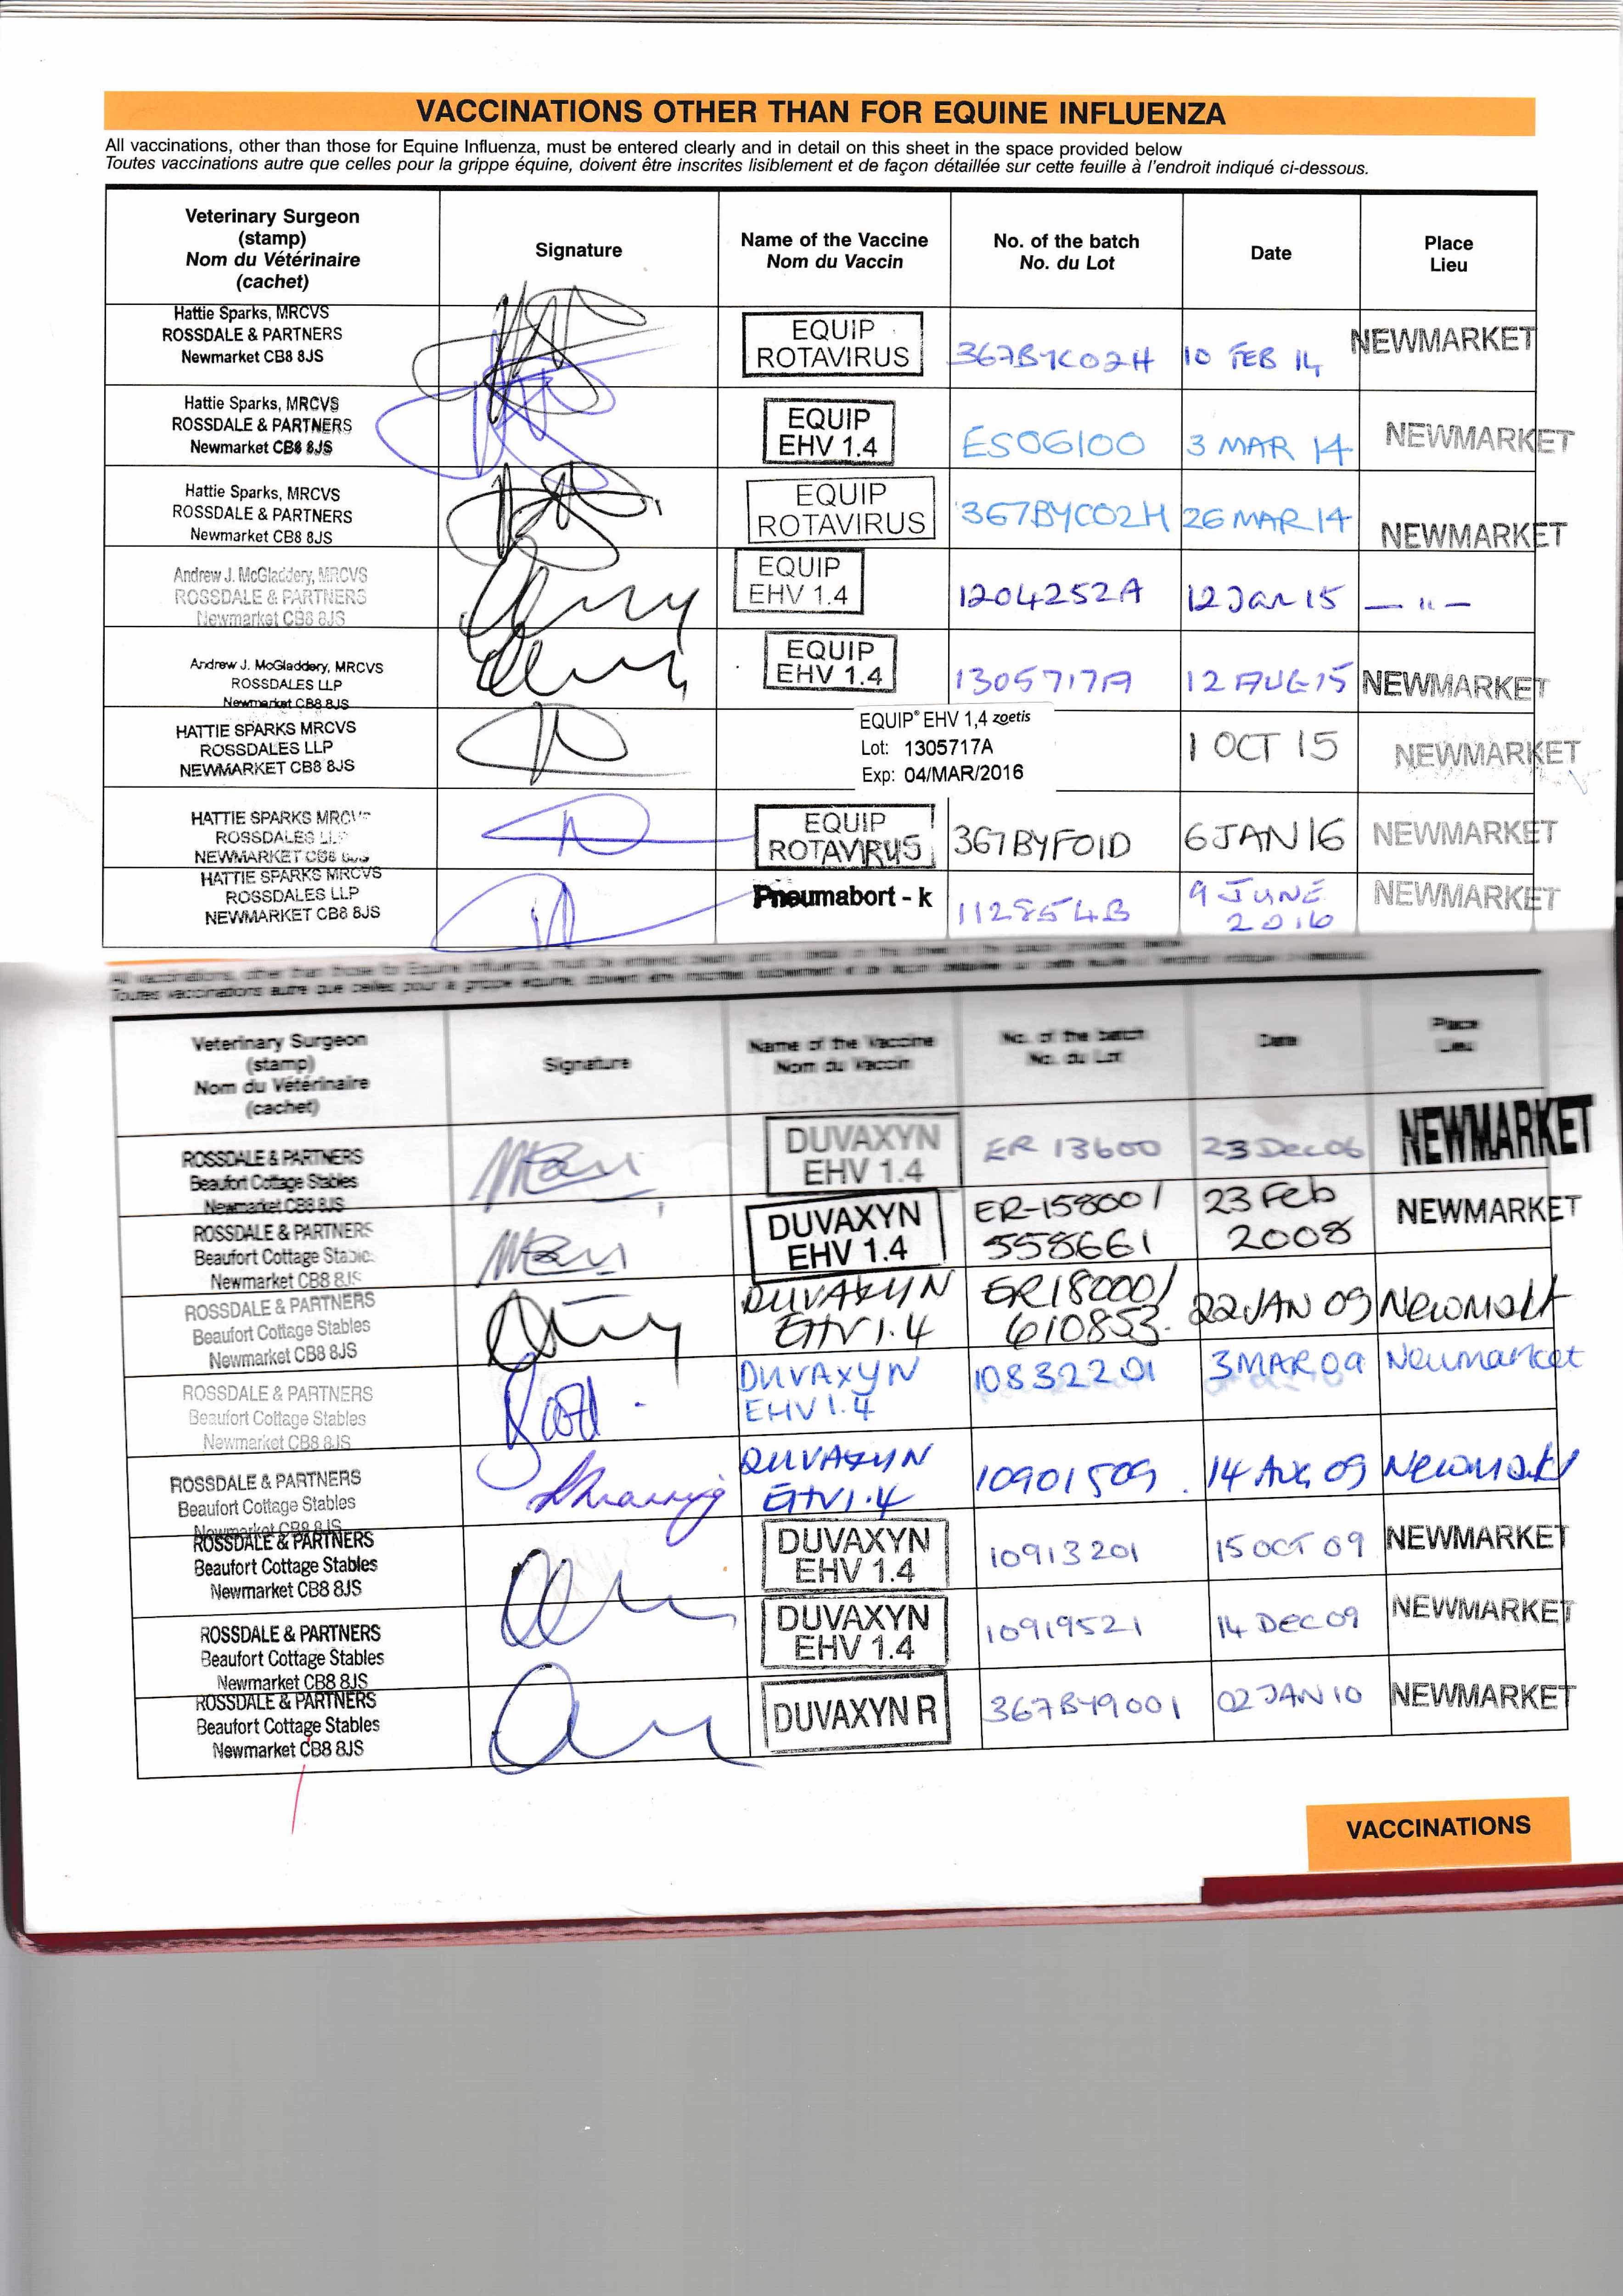 VACCINATIONS OTHER THAN FOR EQUINE INFLUENZA
All vaccinations, other than those for Equine Influenza, must be entered clearly and in detail on this sheet in the space provided below
Toutes vaccinations autre que celles pour la grippe équine, doivent être inscrites lisiblement et de façon détaillée sur cette feuille à l'endroit indiqué ci-dessous.
Veterinary Surgeon
(stamp)
Nom du Vétérinaire
(cachet)
Signature
Name of the Vaccine
Nom du Vaccin
No. of the batch
No. du Lot
Date
Place
Lieu
Hattie Sparks, MRCVS
ROSSDALE & PARTNERS
Newmarket CB8 8JS
EQUIP
ROTAVIRUS
367BYC02H
10 FEB 14
NEWMARKET
Hattie Sparks, MRCVS
ROSSDALE & PARTNERS
Newmarket CB8 8JS
EQUIP
EHV 1.4
ES06100
3 MAR 14
NEWMARKET
Hattie Sparks, MRCVS
ROSSDALE & PARTNERS
Newmarket CB8 8JS
EQUIP
ROTAVIRUS
367BYC02H
26 MAR 14
NEWMARKET
Andrew J. McGladdery, MRCVS
ROSSDALE & PARTNERS
Newmarket CB8 8JS
EQUIP
EHV 1.4
1204252A
12 Jan 15
— " —
Andrew J. McGladdery, MRCVS
ROSSDALES LLP
Newmarket CB8 8JS
EQUIP
EHV 1.4
1305717A
12 AUG 15
NEWMARKET
HATTIE SPARKS MRCVS
ROSSDALES LLP
NEWMARKET CB8 8JS
EQUIP® EHV 1,4 zoetis
Lot: 1305717A
Exp: 04/MAR/2016
1 OCT 15
NEWMARKET
HATTIE SPARKS MRCVS
ROSSDALES LLP
NEWMARKET CB8 8JS
EQUIP
ROTAVIRUS
367BYF01D
6 JAN 16
NEWMARKET
HATTIE SPARKS MRCVS
ROSSDALES LLP
NEWMARKET CB8 8JS
Pneumabort - k
112854B
9 JUNE
2016
NEWMARKET
All vaccinations, other than those for Equine Influenza, must be entered clearly and in detail on this sheet in the space provided below
Toutes vaccinations autre que celles pour la grippe équine, doivent être inscrites lisiblement et de façon détaillée sur cette feuille à l'endroit indiqué ci-dessous.
Veterinary Surgeon
(stamp)
Nom du Vétérinaire
(cachet)
Signature
Name of the Vaccine
Nom du Vaccin
No. of the batch
No. du Lot
Date
Place
Lieu
ROSSDALE & PARTNERS
Beaufort Cottage Stables
Newmarket CB8 8JS
DUVAXYN
EHV 1.4
ER 13600
23 Dec 06
NEWMARKET
ROSSDALE & PARTNERS
Beaufort Cottage Stable
Newmarket CB8 8JS
DUVAXYN
EHV 1.4
ER-15800/
558661
23 Feb
2008
NEWMARKET
ROSSDALE & PARTNERS
Beaufort Cottage Stables
Newmarket CB8 8JS
DUVAXYN
EHV 1.4
ER18000/
610853.
22 JAN 09
Newmarket
ROSSDALE & PARTNERS
Beaufort Cottage Stables
Newmarket CB8 8JS
DUVAXYN
EHV 1.4
10832201
3 MAR 09
Newmarket
ROSSDALE & PARTNERS
Beaufort Cottage Stables
Newmarket CB8 8JS
DUVAXYN
EHV 1.4
10901509.
14 AUG 09
Newmarket
ROSSDALE & PARTNERS
Beaufort Cottage Stables
Newmarket CB8 8JS
DUVAXYN
EHV 1.4
10913201
15 OCT 09
NEWMARKET
ROSSDALE & PARTNERS
Beaufort Cottage Stables
Newmarket CB8 8JS
DUVAXYN
EHV 1.4
10919521
14 DEC 09
NEWMARKET
ROSSDALE & PARTNERS
Beaufort Cottage Stables
Newmarket CB8 8JS
DUVAXYN R
367BY9001
02 JAN 10
NEWMARKET
VACCINATIONS